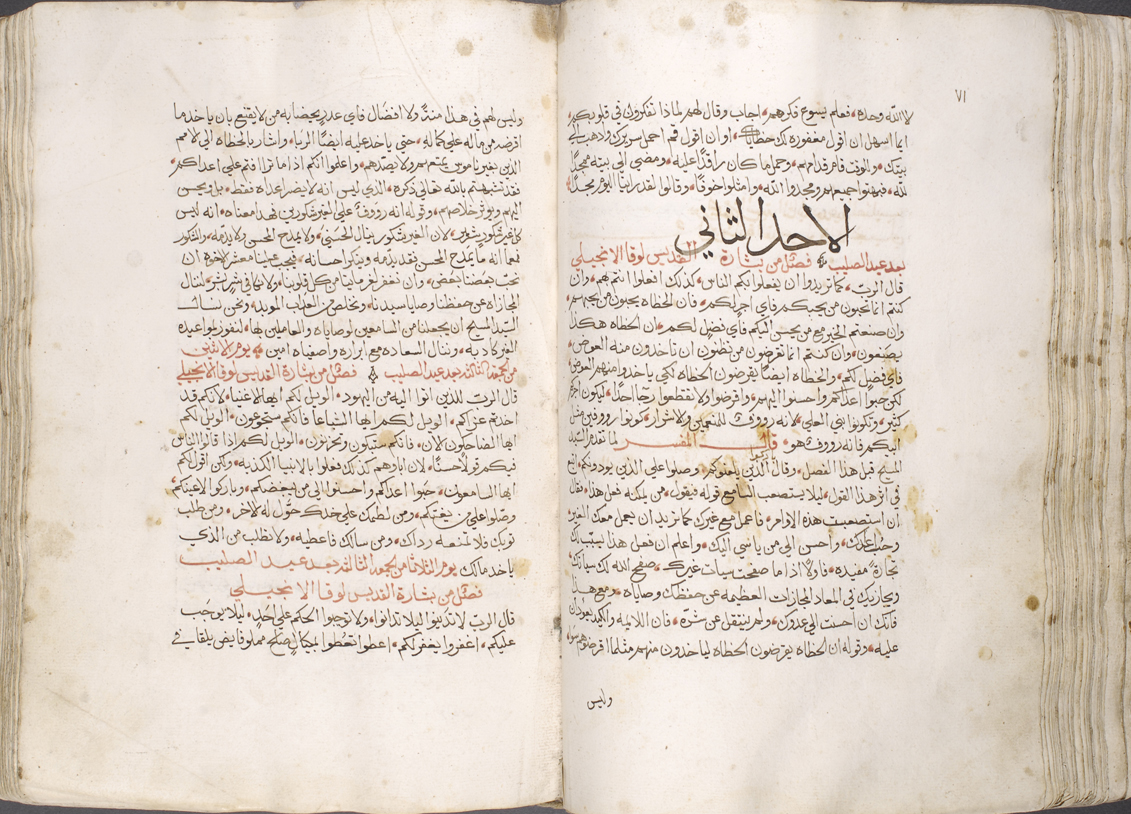 ٧١
لا الله وحده فعلم يسوع فكرهم اجاب وقال لهم لماذا تفكرون في قلوبكم
ايما اسهل ان اقول مغفوره لك خطاياك او ان اقول قم احمل سريرك واذهب الي
بيتك وللوقت قام قدامهم وحمل ما كان راقدًا عليه ومضي الي بيته ممجدًا
لله فبهتوا جميعهم ومجدوا الله وامتلوا خوفًا وقالوا لقد راينا اليوم مجدًا
الاحد الثاني
بعد عيد الصليب فصل من بشارة القديس لوقا الانجيلي
قال الرب كما تريدوا ان يفعلوا بكم الناس كذلك افعلوا انتم بهم وان
كنتم انما تحبون من يحبكم فاي اجر لكم فان الخطاه يحبون من يحبهم
وان صنعتم الخير مع من يحسن اليكم فاي فضل لكم ان الخطاه هكذا
يصنعون وان كنتم انما تقرضون من تظنون ان تاخدون منه العوض
فاي فضل لكم والخطاه ايضًا يقرضون الخطاه لكي ياخدوا منهم العوض
لكن حبوا اعداكم واحسنوا اليهم واقرضوا ولا تقطعوا رجا احد ليكون اجركم
كثير وتكونوا بني العلي لانه رووف علي المنعمين والاشرار كونوا رووفين مثل
ابيكم فانه رووف هو قال المفسر لما تقدم السيد
المسيح قبل هذا الفصل وقال الذين يلعنوكم وصلوا علي الذين يودونكم اتبع
في اثر هذا القول ليلا يستصعب السامع قوله فيقول من يمكنه فعل هذا فقال
ان استصعبت هذه الاوامر فاعمل مع غيرك كما تريد ان يعمل معك الغير
وحب اعداك واحسن الي من ياسي اليك واعلم ان فعل هذا يسبب لك
تجارة مفيده فاولًا اذا ما صفحت سيات غيرك صفح الله لك سياتك
ويجازيك في المعاد المجازات العظيمه عن حفظك وصاياه ومع هذا
فانك ان احسنت الي عدوك ولم ينتقل عن شره فان اللايمه والكيد يعودان
عليه وقوله ان الخطاه يقرضون الخطاه لياخدون منهم مثلما اقرضوهم
وليس
وليس لهم في هذا منةً ولا افضال فاي عدر يحضا به من لا يقتنع بان ياخد ما
اقرضه من ماله علي كماله حتي ياخد عليه ايضًا الربا واشار بالخطاه الي الامم
الذين بغير ناموس يمنعهم ولا يصدهم واعلموا انكم اذا ما تراافتم علي اعداكم
فقد تشبهتم بالله تعالي ذكره الذي ليس انه لا يضر اعداه فقط بل ويحسن
اليهم ويوثر خلاصهم وقوله انه رووف علي الغير شكورين فهدا معناه انه ليس
كل غير شكور شرير لان الغير شكور ينال الحسني ولا يمدح المحسن ولا يذمه والشكور
فمعا انه ما يمدح المحسن فقد يذمه وينكر احسانه فيجب علينا معشر الاخوه ان
نحب بعضنا بعض وان نغفر لغرماينا من كل قلوبنا ولا نكافي شر بشر لننال
المجازاه عن حفظنا وصايا سيدنا ونخلص من العداب الموبد ونحن نسال
السيد المسيح ان يجعلنا من السامعين لوصاياه والعاملين بها لنفوز بمواعيده
الغير كادبه وننال السعاده مع ابراره واصفياه امين يوم الاثنين
من الجمعه الثالثه بعد عيد الصليب فصل من بشارة القديس لوقا الانجيلي
قال الرب للذين اتوا اليه من اليهود الويل لكم ايها الاغنيا لانكم قد
اخدتم عزاكم الويل لكم ايها الشباعا فانكم ستجوعون الويل لكم
ايها الضاحكون الان فانكم ستبكون وتحزنون الويل لكم اذا قال الناس
فيكم قولًا حسنًا لان اباوهم كذلك فعلوا بالانبيا الكذبه ولكن اقول لكم
ايها السامعون حبوا اعداكم واحسنوا الي من يبغضكم وباركوا لاعينكم
وصلوا علي من يغتبكم ومن لطمك علي خدك حول له الاخر ومن طلب
ثوبك فلا تمنعه رداك ومن سالك فاعطيه ولا تطلب من الذي
ياخد مالك يوم الثلاثا من الجمعه الثالثه بعد عيد الصليب
فصل من بشارة القديس لوقا الانجيلي
قال الرب لا تدينوا ليلا تدانوا ولا توجبوا الحكم علي احد ليلا يوجب
عليكم اغفروا يغفر لكم اعطوا تعطوا بمكيال صالح مملو فايض يلقا في